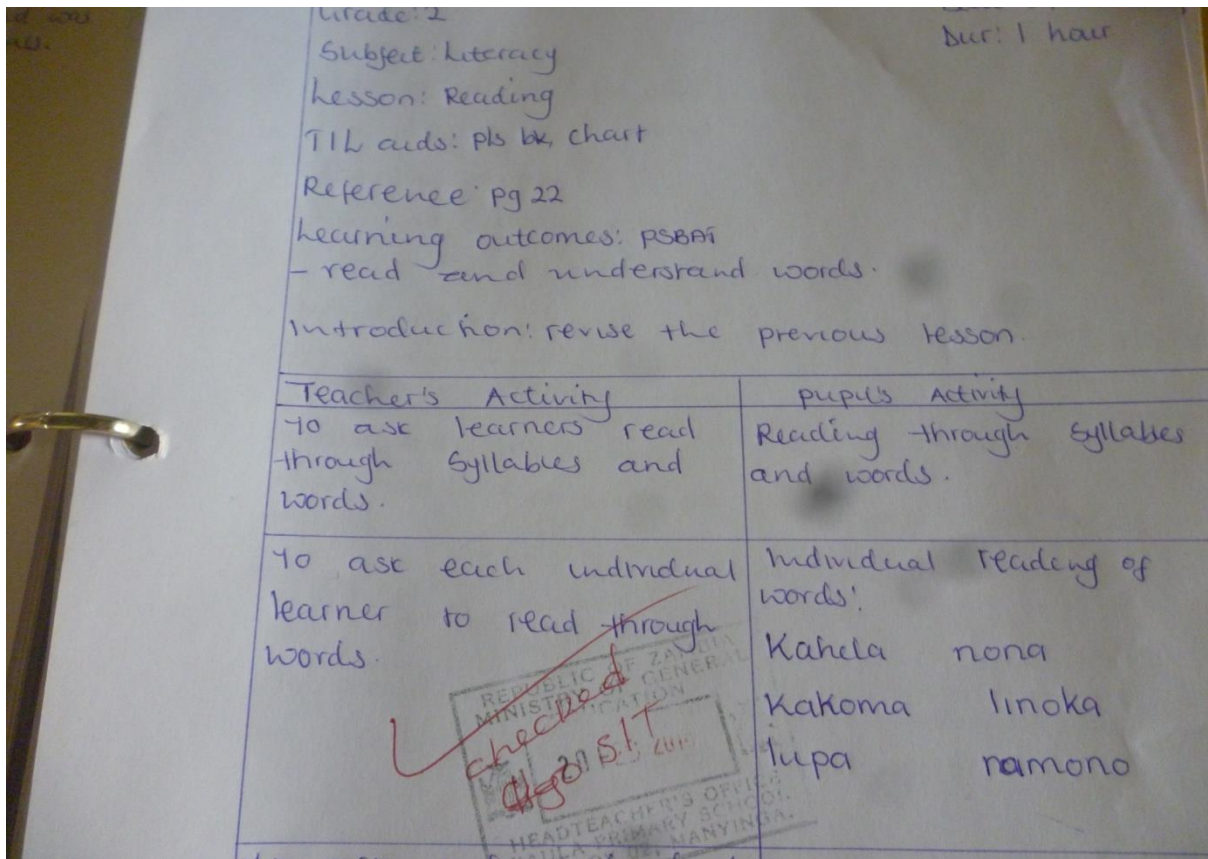 Grade: 2
Dur: 1 hour
Subject: Literacy
Lesson: Reading
TIL aids: pls bk, chart
Reference: pg 22
Learning outcomes: PSBAT
- read and understand words.
Introduction: revise the previous lesson.
Teacher's Activity
To ask learners read
through syllables and
words.
pupil's Activity
Reading through syllables
and words.
To ask each individual
learner to read through
words.
Individual reading of
words:
Kahela nona
Kakoma linoka
lupa namono
REPUBLIC OF ZAMBIA
MINISTRY OF GENERAL
EDUCATION
checked
S.I.T
HEADTEACHER'S OFFICE
PRIMARY SCHOOL
MANYINGA.